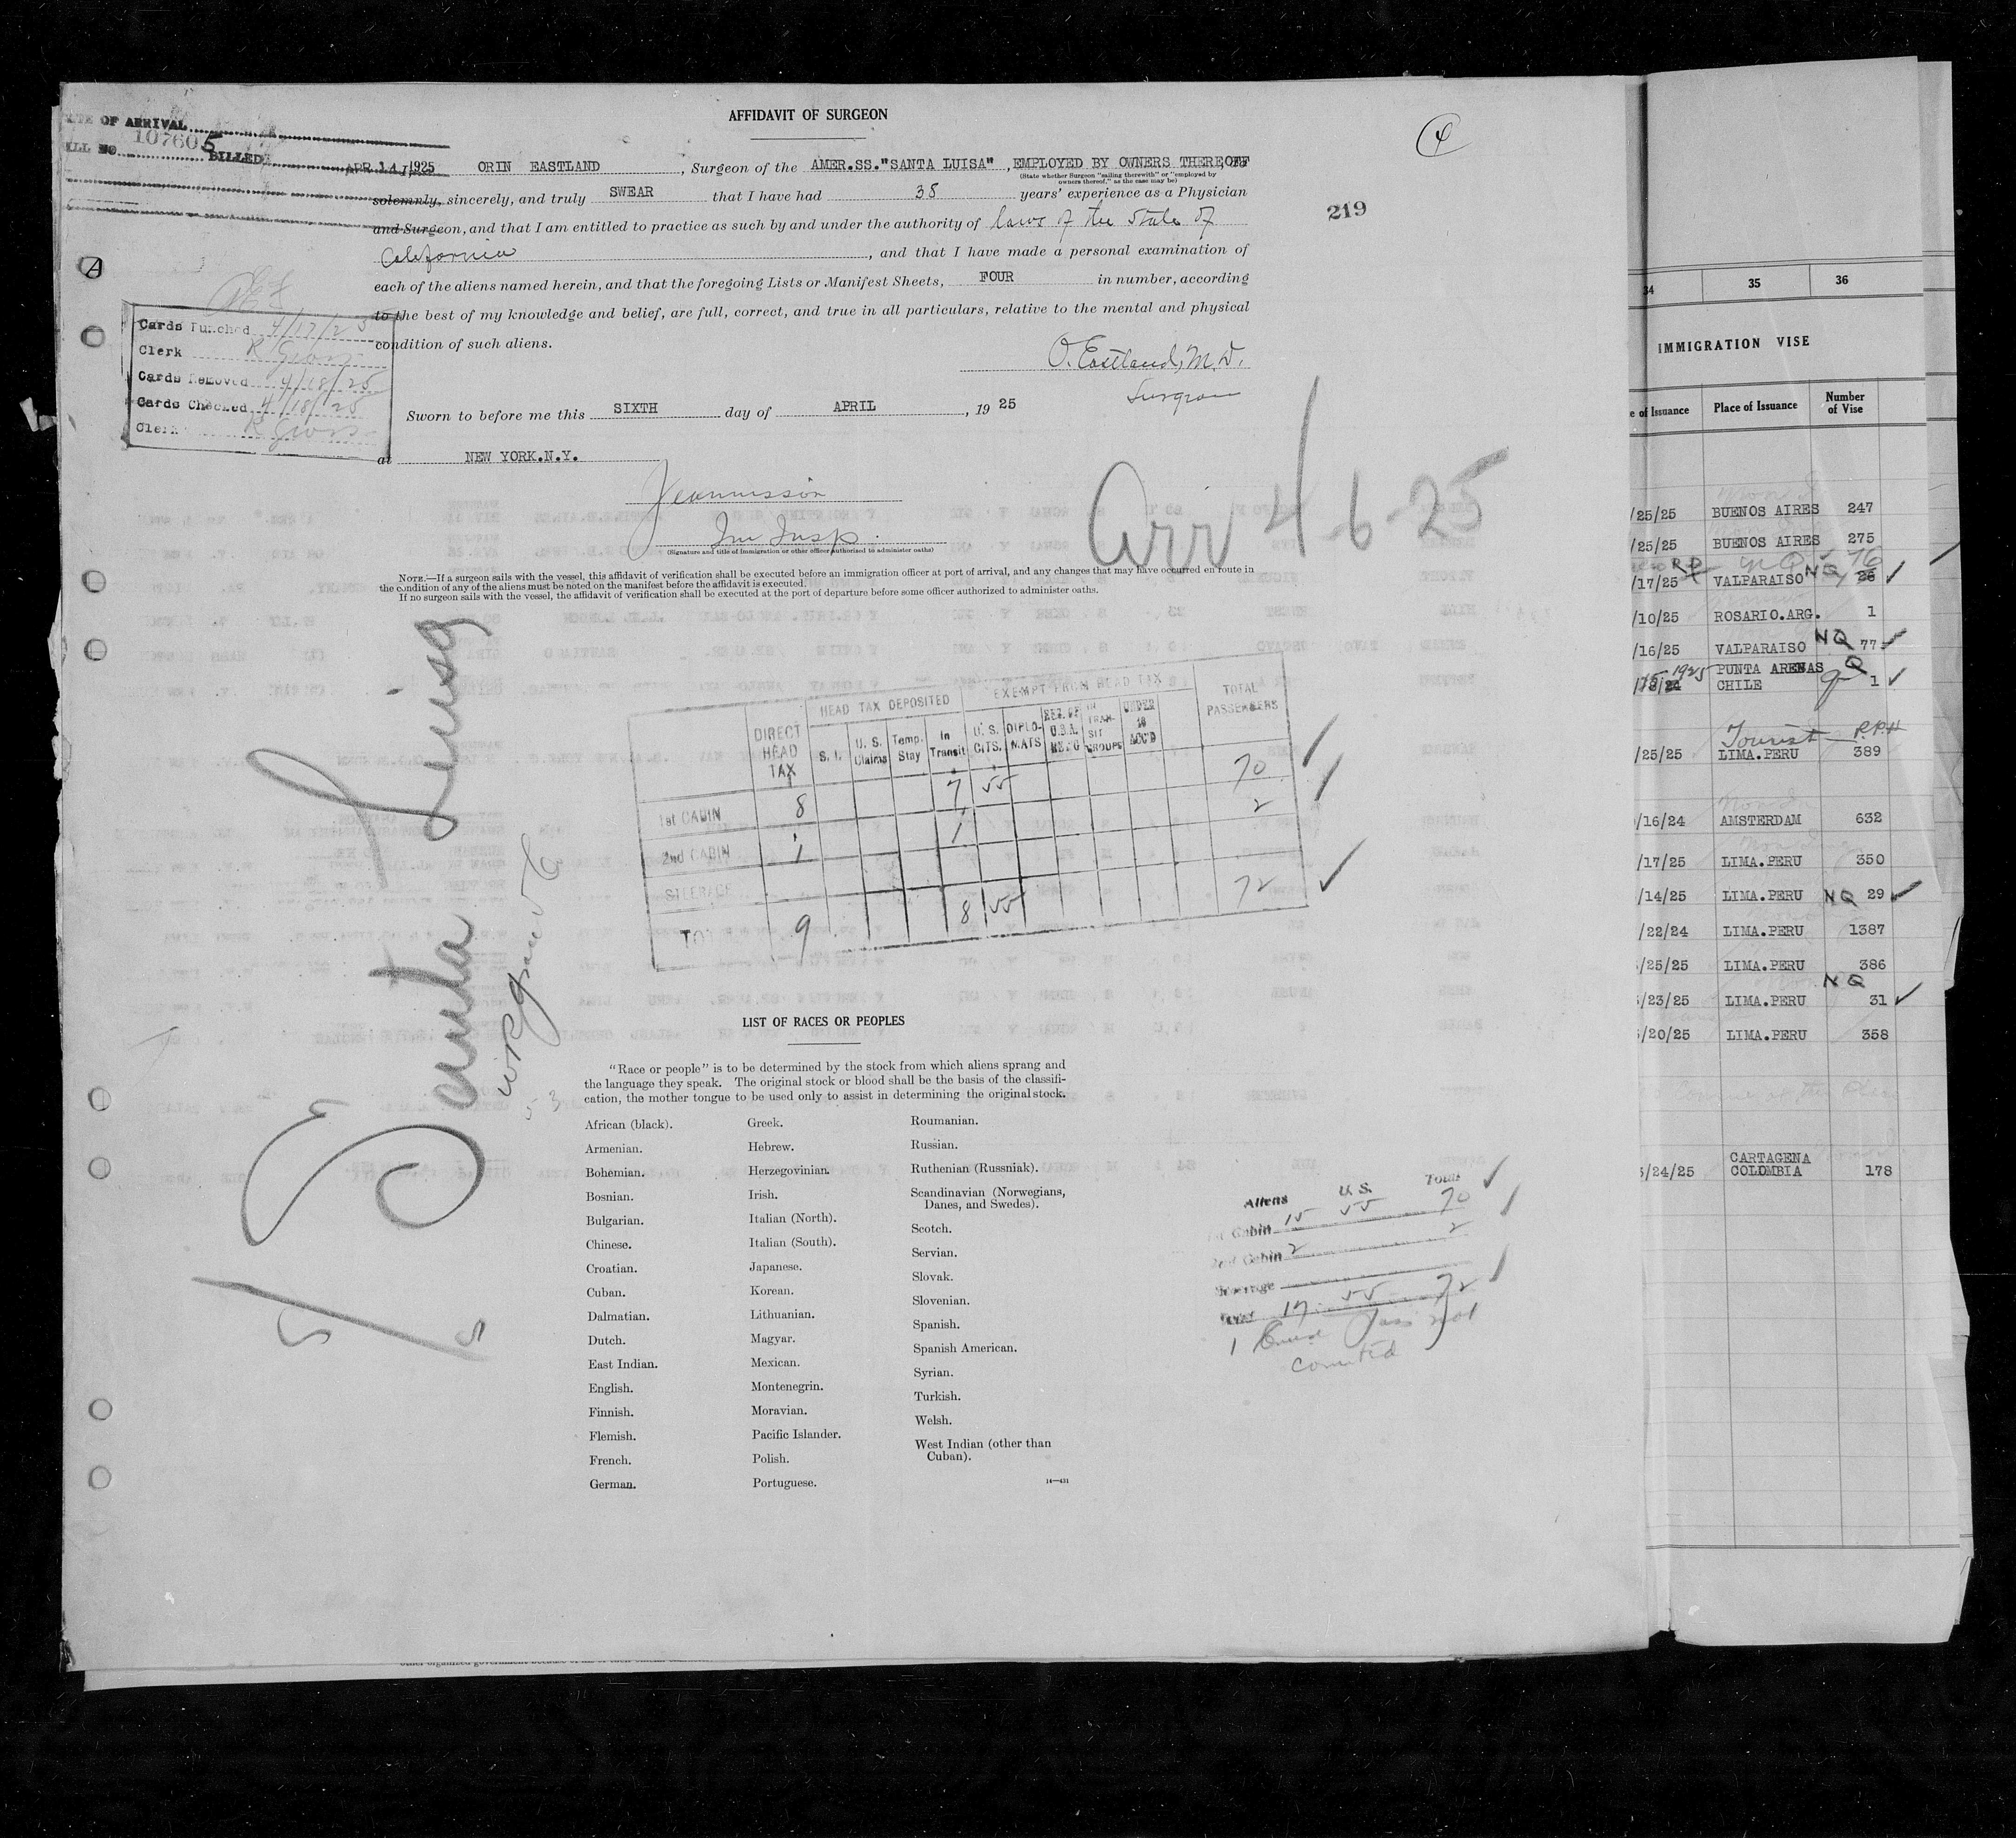 AFFIDAVIT OF SURGEON
DATE OF ARRIVAL
BILL NO 107605 BILLED APR 14 1925
ORIN EASTLAND, Surgeon of the AMER.SS."SANTA LUISA", EMPLOYED BY OWNERS THEREOF
(State whether Surgeon "sailing therewith" or "employed by owners thereof," as the case may be)
solemnly, sincerely, and truly SWEAR that I have had 38 years' experience as a Physician
and Surgeon, and that I am entitled to practice as such by and under the authority of laws of the State of
California, and that I have made a personal examination of
each of the aliens named herein, and that the foregoing Lists or Manifest Sheets, FOUR in number, according
to the best of my knowledge and belief, are full, correct, and true in all particulars, relative to the mental and physical
condition of such aliens.
O. Eastland, M.D.
Surgeon
Sworn to before me this SIXTH day of APRIL, 1925
at NEW YORK.N.Y.
Imm Insp.
(Signature and title of Immigration or other officer authorized to administer oaths)
NOTE.—If a surgeon sails with the vessel, this affidavit of verification shall be executed before an immigration officer at port of arrival, and any changes that may have occurred en route in
the condition of any of the aliens must be noted on the manifest before the affidavit is executed.
If no surgeon sails with the vessel, the affidavit of verification shall be executed at the port of departure before some officer authorized to administer oaths.
219
4
A
Cards Punched 4/17/25
Clerk
Cards Removed 4/18/25
Cards Checked 4/18/25
Clerk
Arr 4-6-25
Santa Luisa
DIRECT HEAD TAX
HEAD TAX DEPOSITED
S. I.
U. S. Claims
Temp. Stay
In Transit
EXEMPT FROM HEAD TAX
U. S. CITS.
DIPLOMATS
IN TRANSIT GROUPS
UNDER 16 ACC'D
TOTAL PASSENGERS
1st CABIN 8 7 55 70
2nd CABIN 1 1 2
STEERAGE
TOTAL 9 8 55 72
LIST OF RACES OR PEOPLES
"Race or people" is to be determined by the stock from which aliens sprang and
the language they speak. The original stock or blood shall be the basis of the classifi-
cation, the mother tongue to be used only to assist in determining the original stock.
African (black).
Armenian.
Bohemian.
Bosnian.
Bulgarian.
Chinese.
Croatian.
Cuban.
Dalmatian.
Dutch.
East Indian.
English.
Finnish.
Flemish.
French.
German.
Greek.
Hebrew.
Herzegovinian.
Irish.
Italian (North).
Italian (South).
Japanese.
Korean.
Lithuanian.
Magyar.
Mexican.
Montenegrin.
Moravian.
Pacific Islander.
Polish.
Portuguese.
Roumanian.
Russian.
Ruthenian (Russniak).
Scandinavian (Norwegians,
Danes, and Swedes).
Scotch.
Servian.
Slovak.
Slovenian.
Spanish.
Spanish American.
Syrian.
Turkish.
Welsh.
West Indian (other than
Cuban).
14—431
Aliens U. S. Total
1st Cabin 15 55 70
2nd Cabin 2 2
Steerage
Total 17 55 72
not
counted
34 35 36
IMMIGRATION VISE
e of Issuance Place of Issuance Number of Vise
/25/25 BUENOS AIRES 247
/25/25 BUENOS AIRES 275
/17/25 VALPARAISO NQ 26
/10/25 ROSARIO.ARG. 1
/16/25 VALPARAISO NQ 77
1925 PUNTA ARENAS
CHILE 1
Tourist
/25/25 LIMA.PERU 389
/16/24 AMSTERDAM 632
/17/25 LIMA.PERU 350
/14/25 LIMA.PERU NQ 29
/22/24 LIMA.PERU 1387
/25/25 LIMA.PERU 386
NQ
/23/25 LIMA.PERU 31
/20/25 LIMA.PERU 358
CARTAGENA
/24/25 COLOMBIA 178